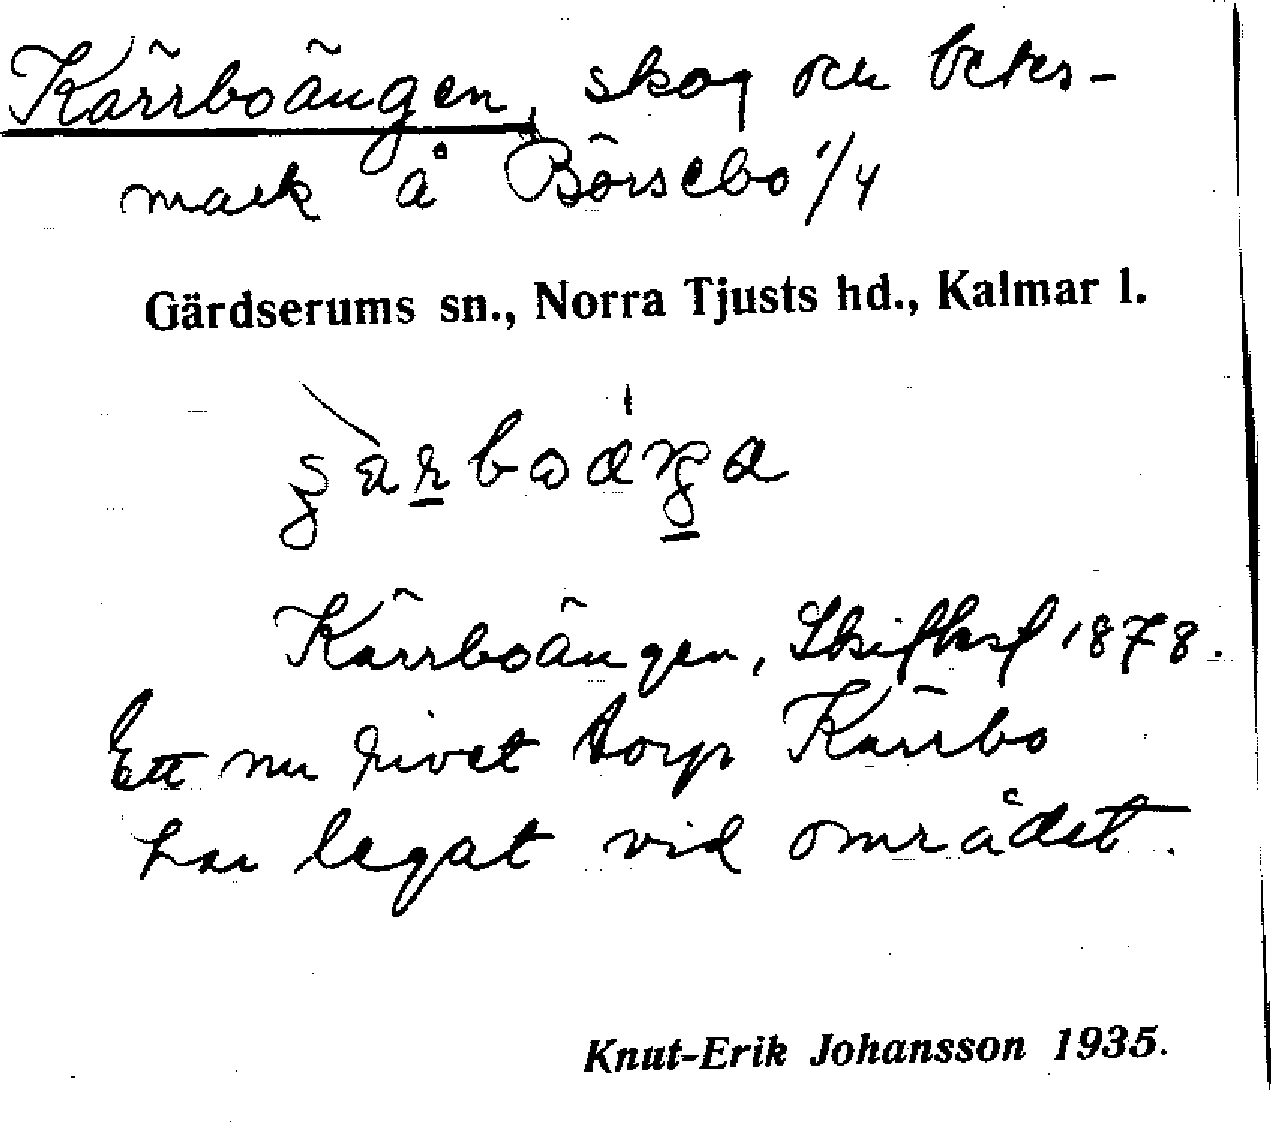 Kärrboängen, skog och betes-
mark å Börsebo 1/4
Gärdserums sn., Norra Tjusts hd., Kalmar l.
Kärrboängen, 1878.
Ett nu rivet torp Kärrbo
har legat vid området.
Knut-Erik Johansson 1935.